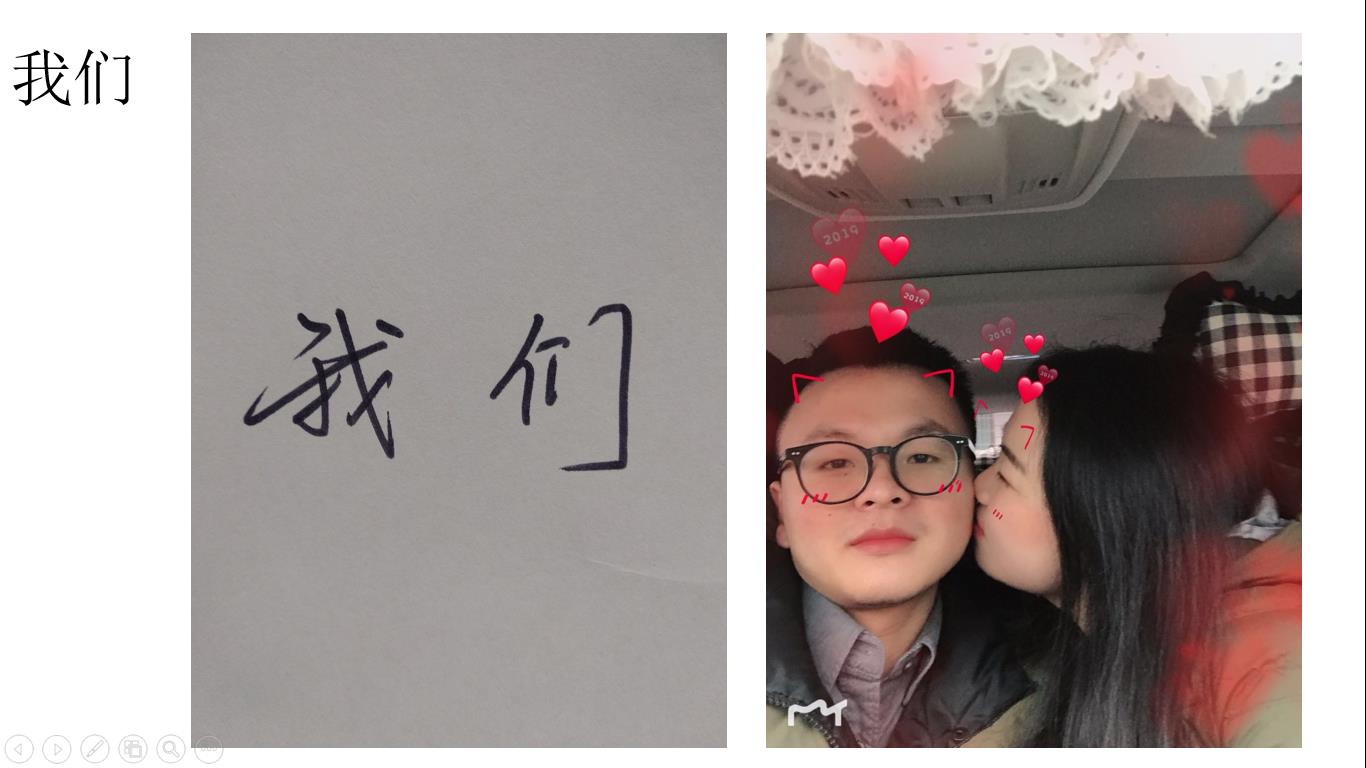 我们
我 们
2019
2019
2019
2019